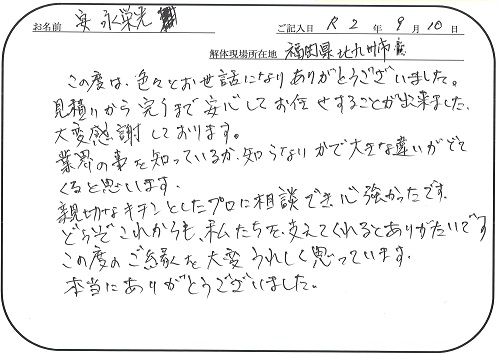 お名前 永栄光 ご記入日 R2年9月10日
解体現場所在地 福岡県北九州市
この度は、色々とお世話になりありがとうございました。
見積りから完了まで安心してお任せすることが出来ました。
大変感謝しております。
業界の事を知っているか、知らないかで大きな違いがでて
くると思います。
親切なキチンとしたプロに相談でき心強かったです。
どうぞこれからも、私たちを、支えてくれるとありがたいです
この度のご縁を大変うれしく思っています。
本当にありがとうございました。